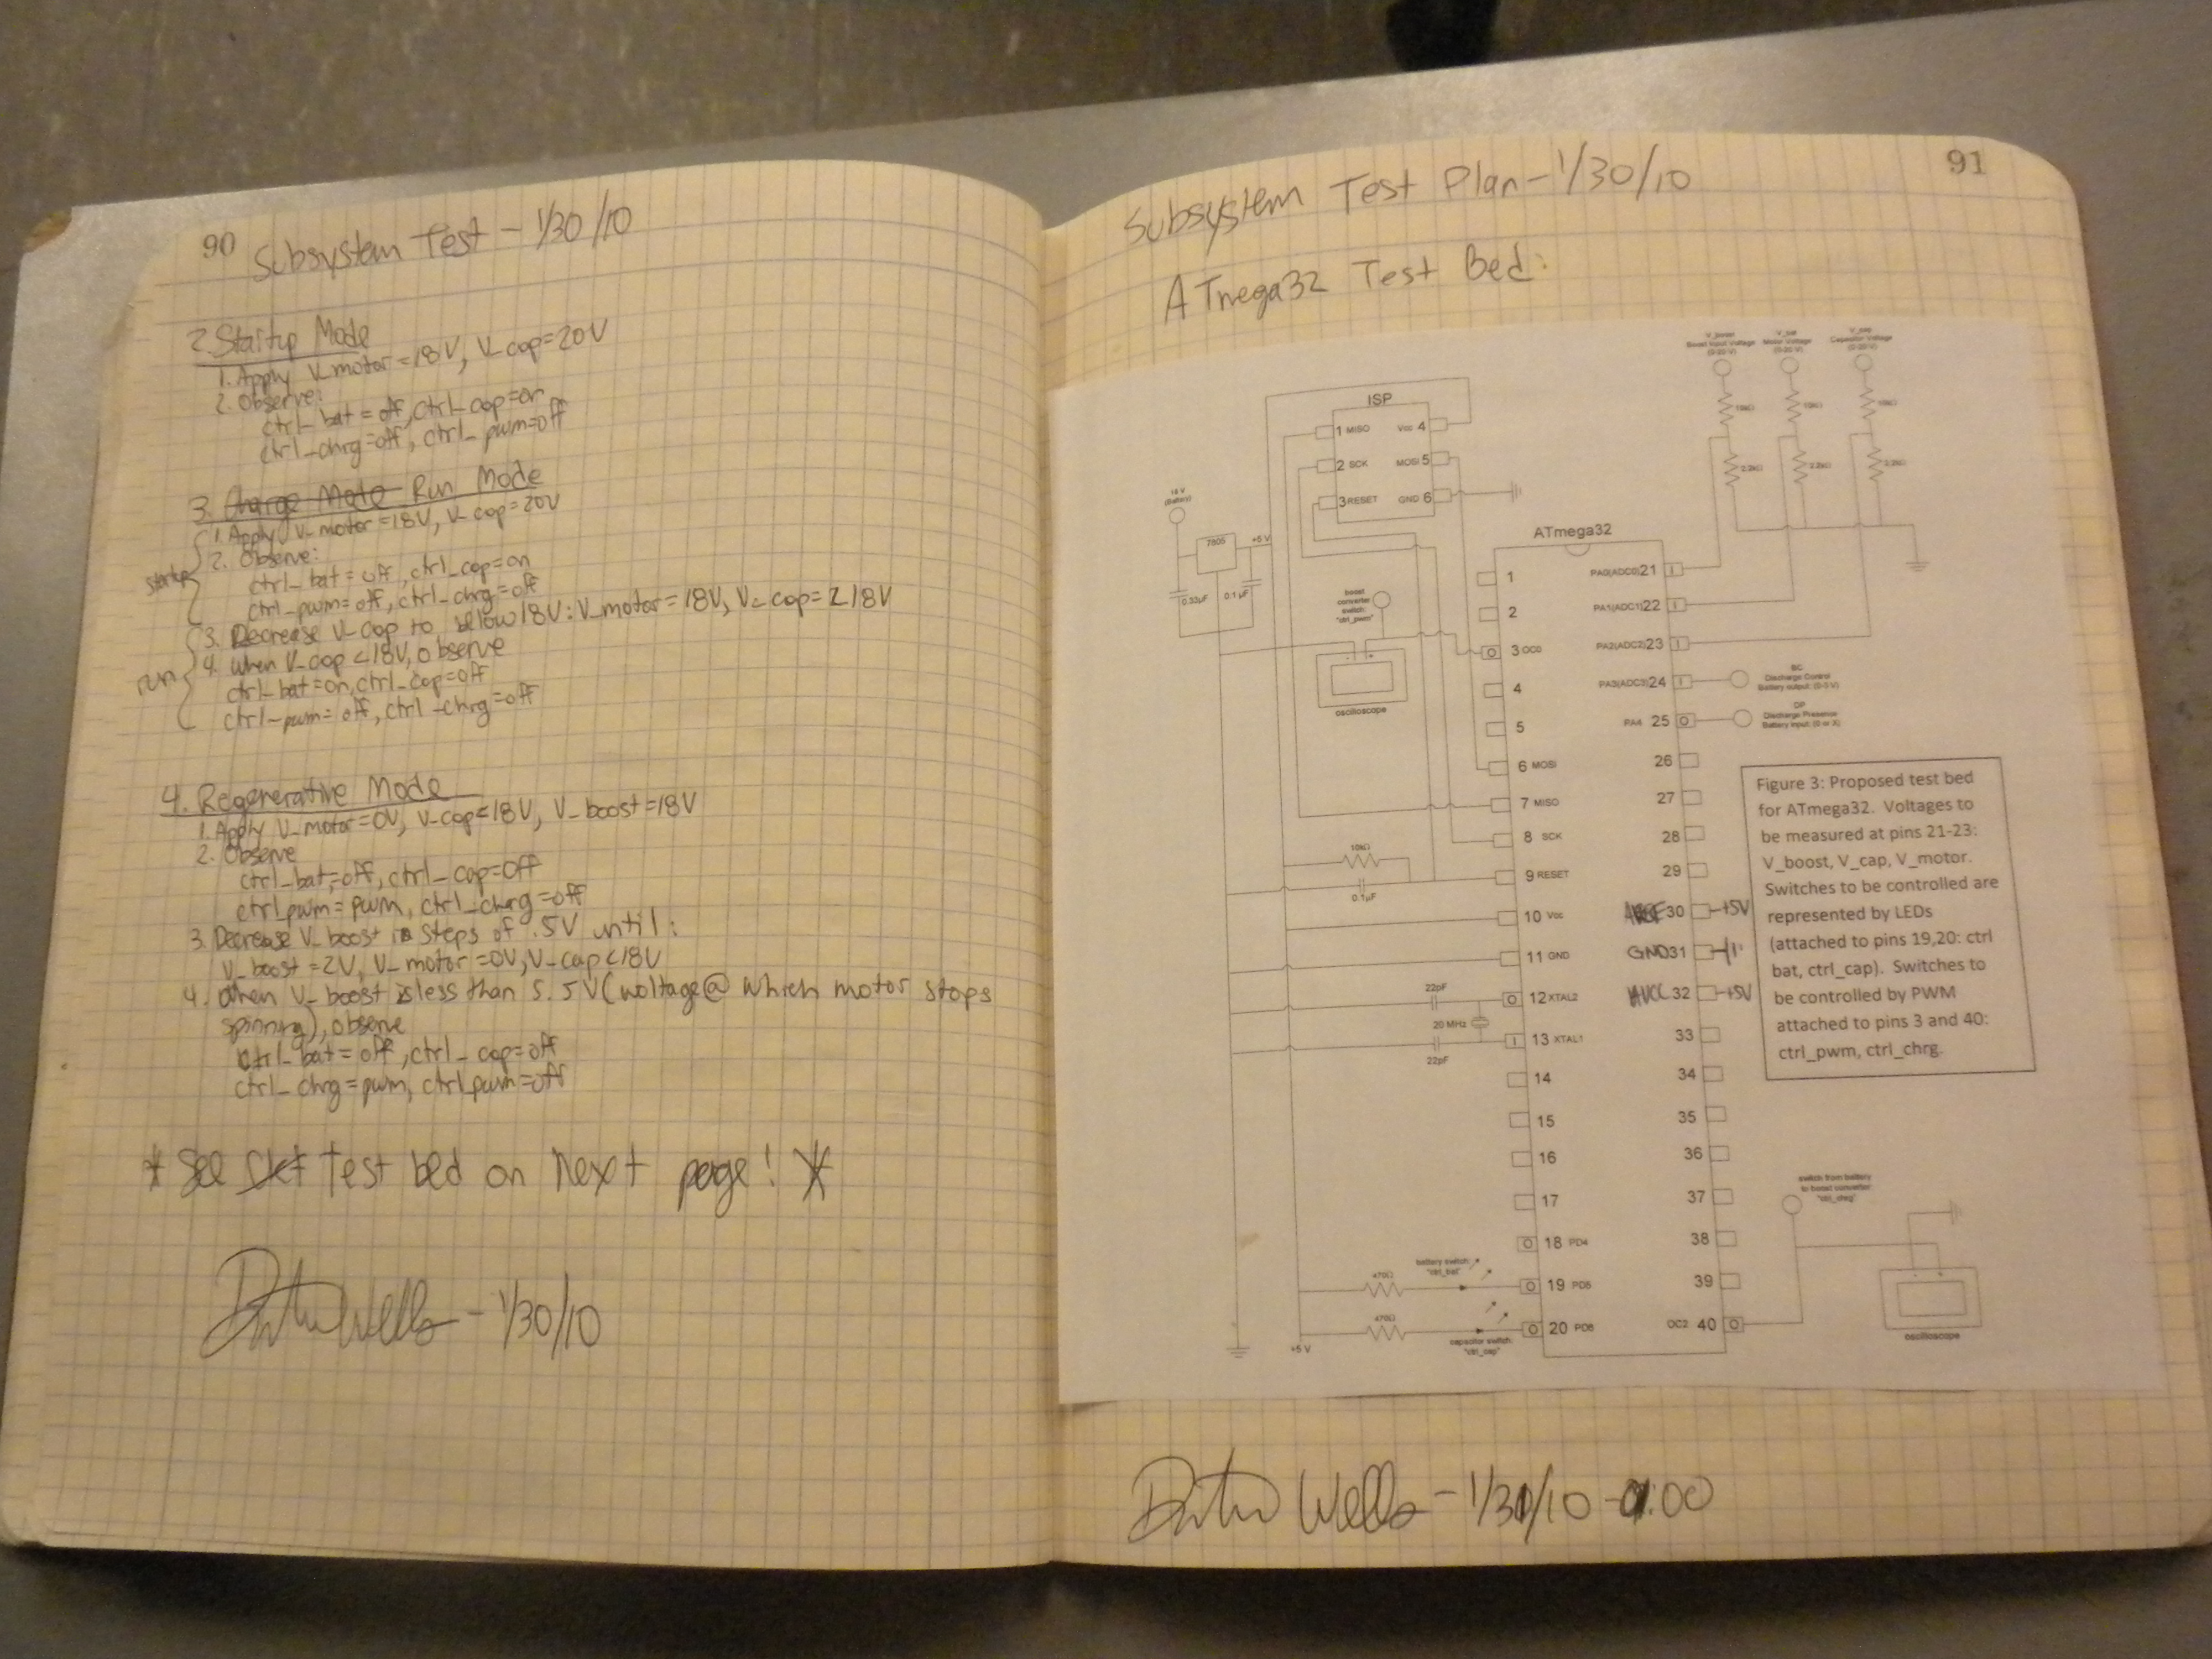 90
Subsystem Test - 1/30/10
2. Startup Mode
1. Apply V_motor=18V, V_cap=20V
2. Observe:
ctrl_bat=off, ctrl_cap=on
ctrl_chrg=off, ctrl_pwm=off
3. Charge Mode Run Mode
startup
1. Apply V_motor=18V, V_cap=20V
2. Observe:
ctrl_bat=off, ctrl_cap=on
ctrl_pwm=off, ctrl_chrg=off
run
3. Decrease V_cap to below 18V: V_motor=18V, V_cap=<18V
4. When V_cap<18V, observe
ctrl_bat=on, ctrl_cap=off
ctrl_pwm=off, ctrl_chrg=off
4. Regenerative Mode
1. Apply V_motor=0V, V_cap<18V, V_boost=18V
2. Observe
ctrl_bat=off, ctrl_cap=off
ctrl_pwm=pwm, ctrl_chrg=off
3. Decrease V_boost in steps of .5V until:
V_boost=2V, V_motor=0V, V_cap<18V
4. When V_boost is less than 5.5V (voltage @ which motor stops
spinning), observe
ctrl_bat=off, ctrl_cap=off
ctrl_chrg=pwm, ctrl_pwm=off
* See Test bed on next page! *
Wells - 1/30/10
91
Subsystem Test Plan - 1/30/10
ATmega32 Test Bed:
V_boost
Boost Input Voltage
(0-20 V)
Motor Voltage
(0-20 V)
V_cap
Capacitor Voltage
(0-20 V)
10kΩ
10kΩ
10kΩ
2.2kΩ
2.2kΩ
2.2kΩ
ISP
1 MISO
Vcc 4
2 SCK
MOSI 5
3 RESET
GND 6
18 V
(Battery)
7805
+5 V
0.33µF
0.1 µF
boost
converter
switch:
"ctrl_pwm"
oscilloscope
ATmega32
1
2
3 OC0
4
5
6 MOSI
7 MISO
8 SCK
9 RESET
10 Vcc
11 GND
12 XTAL2
13 XTAL1
14
15
16
17
18 PD4
19 PD5
20 PD6
PA0(ADC0) 21
PA1(ADC1) 22
PA2(ADC2) 23
PA3(ADC3) 24
PA4 25
26
27
28
29
AREF 30 +5V
GND 31
AVCC 32 +5V
33
34
35
36
37
38
39
OC2 40
BC
Discharge Control
Battery output: (0-5 V)
DP
Discharge Presence
Battery input: (0 or X)
10kΩ
0.1µF
22pF
20 MHz
22pF
470Ω
battery switch:
"ctrl_bat"
470Ω
capacitor switch:
"ctrl_cap"
+5 V
switch from battery
to boost converter:
"ctrl_chrg"
oscilloscope
Figure 3: Proposed test bed
for ATmega32. Voltages to
be measured at pins 21-23:
V_boost, V_cap, V_motor.
Switches to be controlled are
represented by LEDs
(attached to pins 19,20: ctrl
bat, ctrl_cap). Switches to
be controlled by PWM
attached to pins 3 and 40:
ctrl_pwm, ctrl_chrg.
Wells - 1/31/10